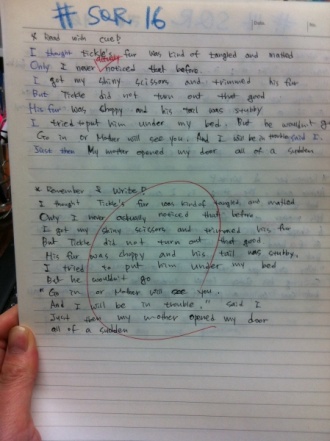 # SQR. 16
& Read with cue?
I thought Tickle's fur was kind of tangled and matted
Only I never actually noticed that before.
I got my shiny scissors and trimmed his fur
But Tickle did not turn out that good
His fur was choppy and his tail was stubby
I tried to put him under my bed. But he wouldn't go
Go in or Mother will see you. And I will be in trouble, said I.
Just then My mother opened my door all of a sudden
Remember & Write?
I thought Tickle's fur was kind of tangled, and matted
Only I never actually noticed that before.
I got my shiny scissors and trimmed his fur
But Tickle did not turn out that good
His fur was choppy and his tail was stubby.
I tried to put him under my bed
But he wouldn't go
"Go in or Mother will see you.
And I will be in trouble" said I
Just then my mother opened my door
all of a sudden